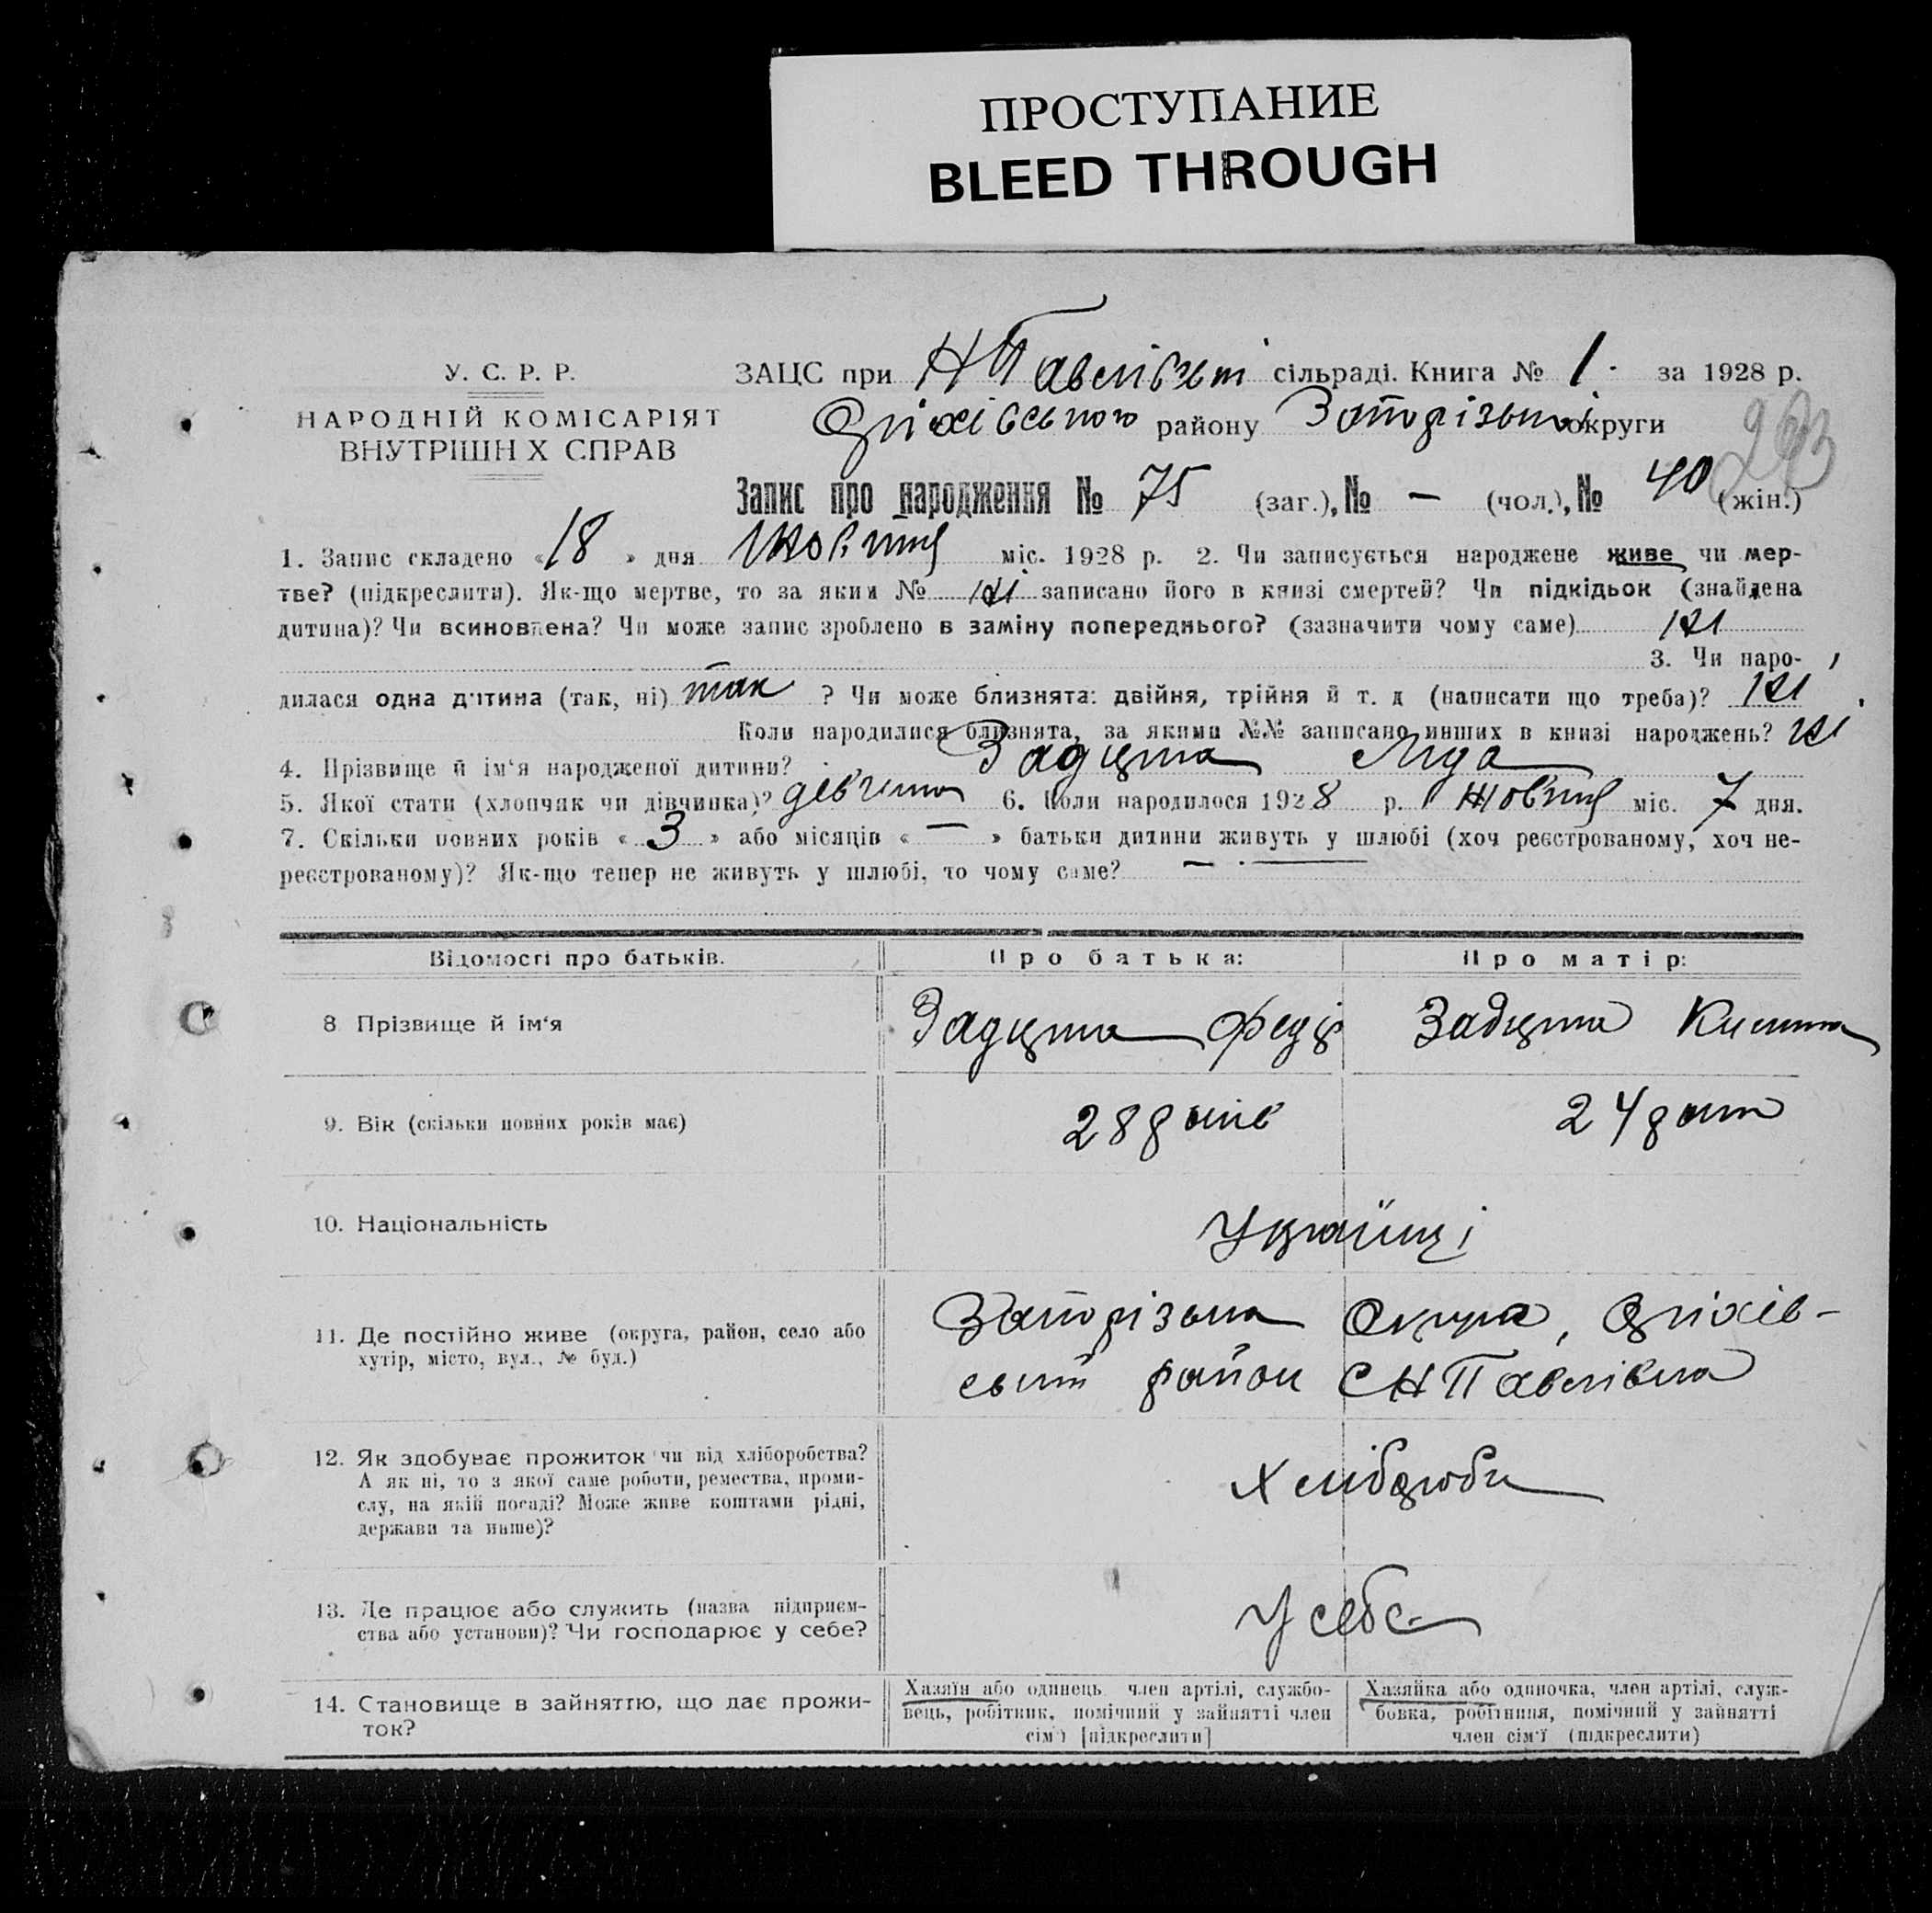 ПРОСТУПАНИЕ
BLEED THROUGH
У. С. Р. Р.
НАРОДНІЙ КОМІСАРІЯТ
ВНУТРІШН Х СПРАВ
ЗАЦС при Н Павлівській сільраді. Книга № 1. за 1928 р.
Оріхівського району Запорізької округи
Запис про народження № 75 (заг.), № — (чол.), № 40 (жін.)
1. Запис складено «18» дня Жовтня міс. 1928 р. 2. Чи записується народжене живе чи мер-
тве? (підкреслити). Як-що мертве, то за яким № ні записано його в книзі смертей? Чи підкідьок (знайдена
дитина)? Чи всиновлена? Чи може запис зроблено в заміну попереднього? (зазначити чому саме) ні
3. Чи наро-
дилася одна дитина (так, ні) так ? Чи може близнята: двійня, трійня й т. д (написати що треба)? ні
Коли народилися близнята, за якими №№ записано инших в книзі народжень? ні
4. Прізвище й ім'я народженої дитини? Ліда
5. Якої стати (хлопчик чи дівчинка)? дівчина 6. Коли народилося 1928 р. Жовтня міс. 7 дня.
7. Скільки повних років «3» або місяців «—» батьки дитини живуть у шлюбі (хоч реєстрованому, хоч не-
реєстрованому)? Як-що тепер не живуть у шлюбі, то чому саме? —
Відомості про батьків.
Про батька:
Про матір:
8 Прізвище й ім'я
Федір
9. Вік (скільки повних років має)
28 років
24 роки
10. Національність
Українці
11. Де постійно живе (округа, район, село або
хутір, місто, вул., № буд.)
Запорізька Округа, Оріхів-
ський район С Н Павлівка
12. Як здобуває прожиток чи від хліборобства?
А як ні, то з якої саме роботи, ремества, проми-
слу, на якій посаді? Може живе коштами рідні,
держави та инше)?
Хлібороби
13. Де працює або служить (назва підприєм-
ства або установи)? Чи господарює у себе?
У себе
14. Становище в зайняттю, що дає прожи-
ток?
Хазяїн або одинець член артілі, службо-
вець, робітник, помічний у зайнятті член
сім'ї [підкреслити]
Хазяйка або одиночка, член артілі, служ-
бовка, робітниця, помічний у зайнятті
член сім'ї (підкреслити)